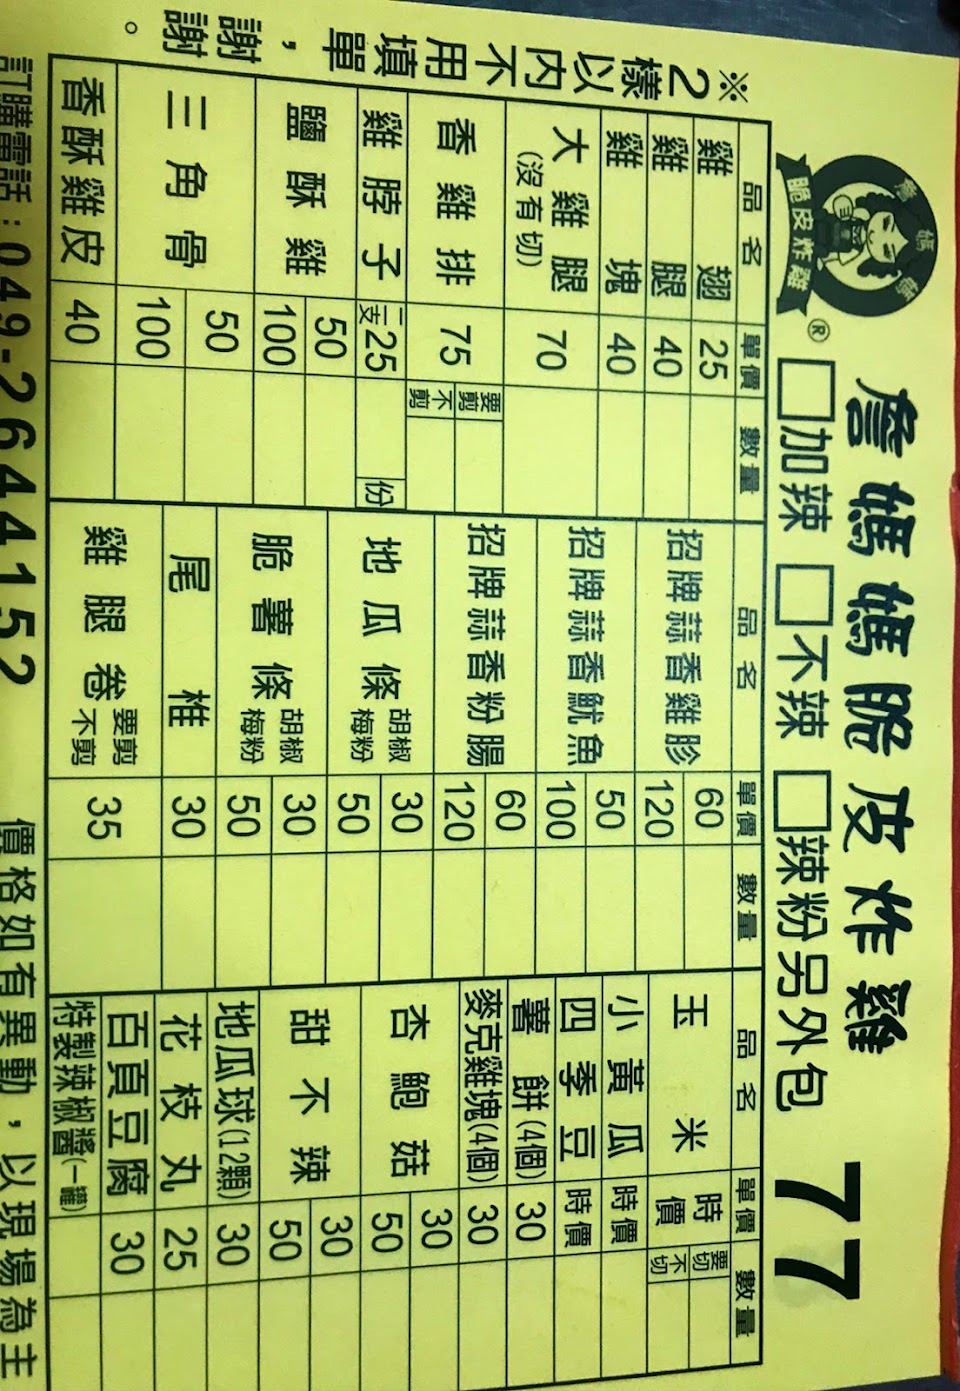 詹媽媽脆皮炸雞 77
詹媽媽
脆皮炸雞
®
□加辣 □不辣 □辣粉另外包
品名 單價 數量
雞翅 25
雞腿 40
雞塊 40
大雞腿(沒有切) 70
香雞排 75 要剪 不剪
雞脖子 二支25 份
鹽酥雞 50
100
三角骨 50
100
香酥雞皮 40
品名 單價 數量
招牌蒜香雞胗 60
120
招牌蒜香魷魚 50
100
招牌蒜香粉腸 60
120
地瓜條 胡椒 梅粉 30
50
脆薯條 胡椒 梅粉 30
50
尾椎 30
雞腿卷 要剪 不剪 35
品名 單價 數量
玉米 時價 要切 不切
小黃瓜 時價
四季豆 時價
薯餅(4個) 30
麥克雞塊(4個) 30
杏鮑菇 30
50
甜不辣 30
50
地瓜球(12顆) 30
花枝丸 25
百頁豆腐 30
特製辣椒醬(一罐)
※2樣以內不用填單，謝謝。
訂購電話:049-2644152 價格如有異動，以現場為主